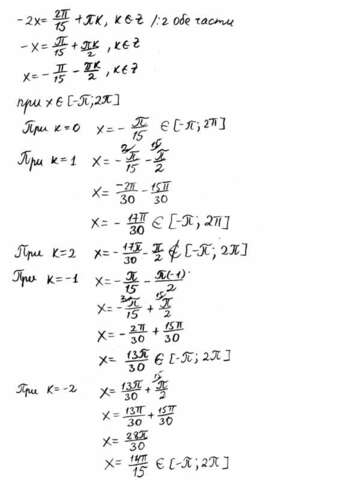 -2x = 2π/15 + πk, k∈Z /:2 обе части
-x = π/15 + πk/2, k∈Z
x = -π/15 - πk/2, k∈Z
при x∈[-π;2π]
При k=0 x = -π/15 ∈ [-π;2π]
При k=1 x = -π/15 - π/2
x = -2π/30 - 15π/30
x = -17π/30 ∈ [-π;2π]
При k=2 x = -17π/30 - π/2 ∉ [-π;2π]
При k=-1 x = -π/15 - π(-1)/2
x = -π/15 + π/2
x = -2π/30 + 15π/30
x = 13π/30 ∈ [-π;2π]
При k=-2 x = 13π/30 + π/2
x = 13π/30 + 15π/30
x = 28π/30
x = 14π/15 ∈ [-π;2π]